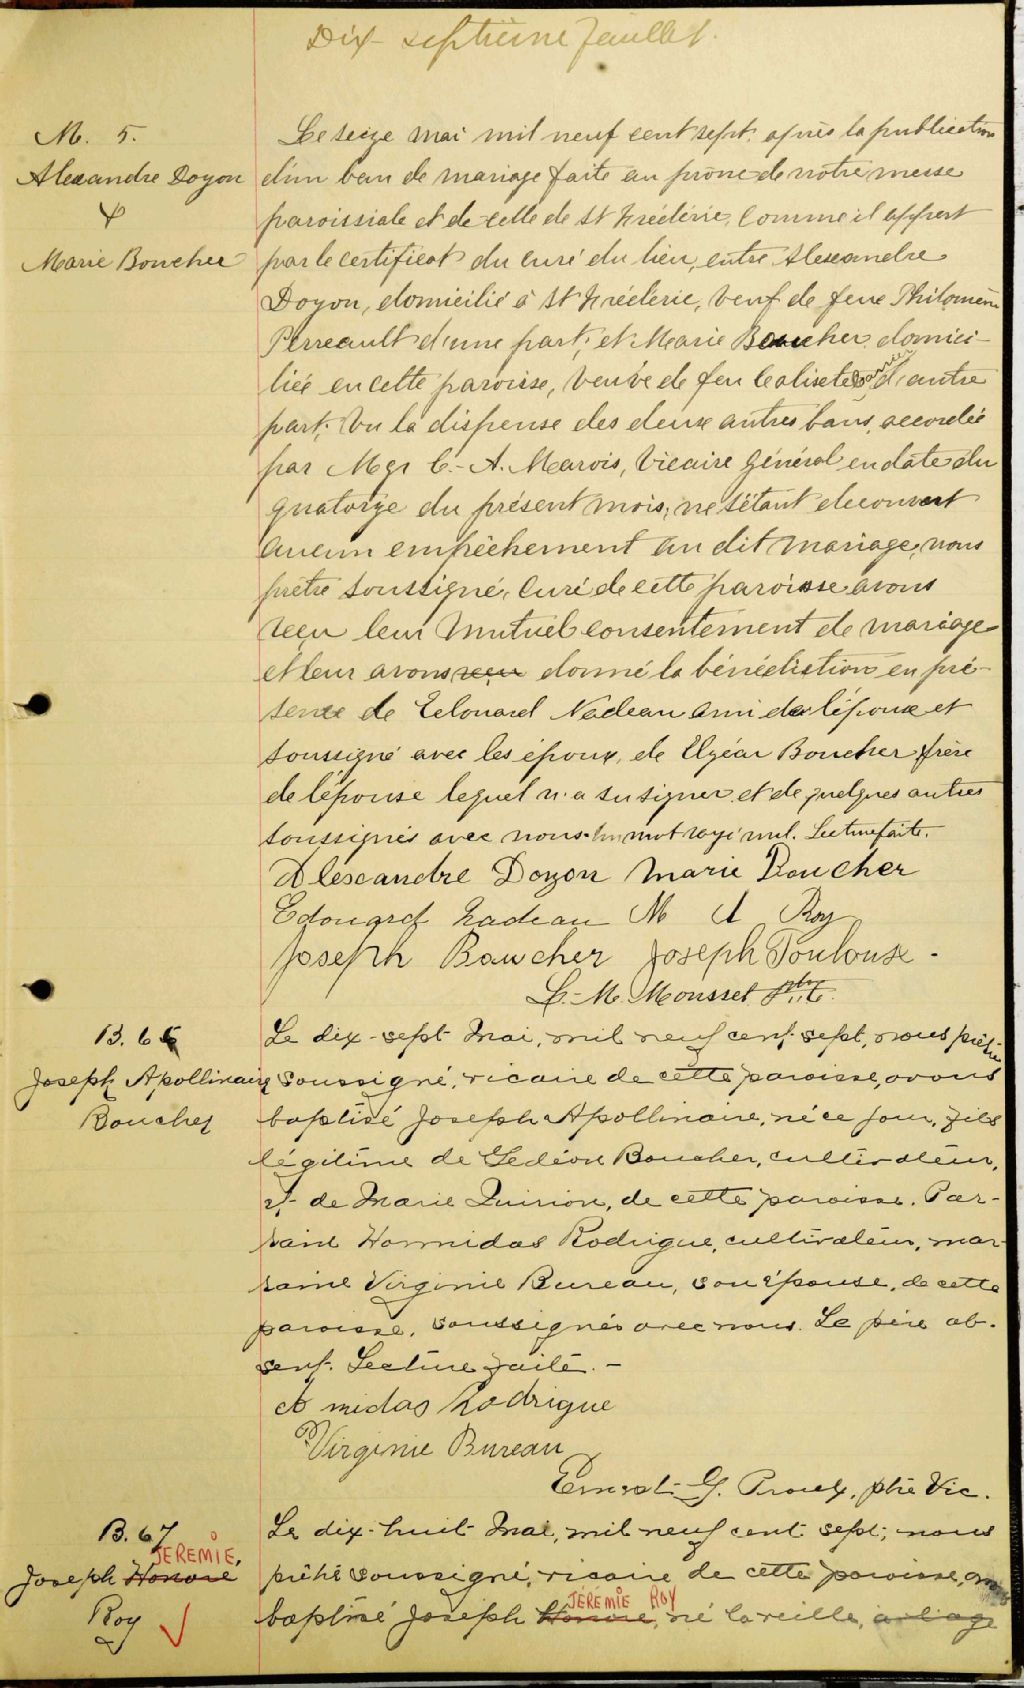 Dix-septième feuillet.
M. 5.
Alexandre Doyon
&
Marie Boucher
Le seize mai mil neuf cent sept, après la publication
d'un ban de mariage faite au prône de notre messe
paroissiale et de celle de St Fréderic, comme il appert
par le certificat du curé du lieu, entre Alexandre
Doyon, domicilié à St Fréderic, veuf de feue Philomène
Perreault d'une part; et Marie Boucher domici-
liée en cette paroisse, veuve de feu Calixte d'autre
part; Vu la dispense des deux autres bans, accordée
par Mgr C.-A. Marois, Vicaire Général en date du
quatorze du présent mois; ne s'étant decouvert
aucun empêchement au dit mariage; nous
prêtre soussigné, curé de cette paroisse avons
reçu leur mutuel consentement de mariage
et leur avons reçu donné la bénédiction en pré-
sence de Edouard Nadeau ami de l'époux et
soussigné avec les époux, de Elzéar Boucher frère
de l'épouse lequel n'a su signer et de quelques autres
soussignés avec nous. Un mot rayé nul. Lecture faite.
Alexandre Doyon Marie Boucher
Edouard Nadeau M A Roy
Joseph Boucher Joseph Toulouse.
L.-M. Mousset Ptre
B. 66
Joseph Apollinaire
Boucher
Le dix-sept Mai, mil neuf cent sept, nous prêtre
soussigné, vicaire de cette paroisse, avons
baptisé Joseph Apollinaire, né ce jour, fils
légitime de Gedéon Boucher, cultivateur,
et de Marie Quirion, de cette paroisse. Par-
rain Hormidas Rodrigue, cultivateur, mar-
raine Virginie Bureau, son épouse, de cette
paroisse, soussignés avec nous. Le père ab-
sent. Lecture faite.-
A midas Rodrigue
Virginie Bureau
Ernest G. Proulx, ptre Vic.
B. 67
JEREMIE,
Joseph Honoré
Roy
Le dix-huit Mai, mil neuf cent sept, nous
prêtre soussigné, vicaire de cette paroisse,
JÉRÉMIE ROY
baptisé Joseph Honoré, né la veille, à l'age